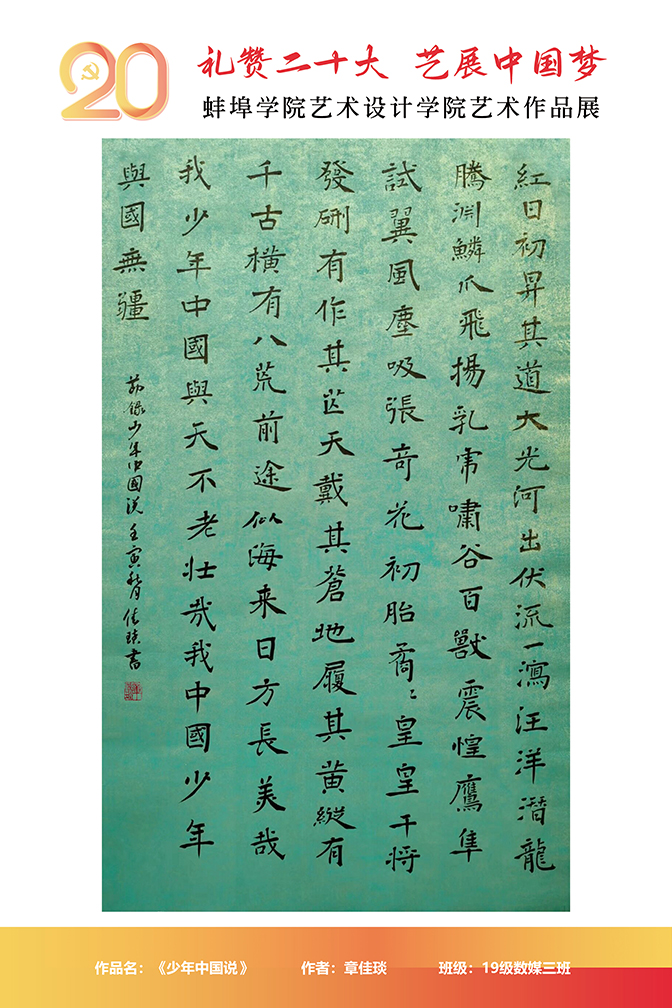 20
礼赞二十大 艺展中国梦
蚌埠学院艺术设计学院艺术作品展
紅日初昇其道大光河出伏流一瀉汪洋潛龍
騰淵鱗爪飛揚乳虎嘯谷百獸震惶鷹隼
試翼風塵吸張奇花初胎矞〻皇皇干将
發硎有作其茫天戴其蒼地履其黄縱有
千古橫有八荒前途似海来日方長美哉
我少年中國與天不老壯哉我中國少年
與國無疆
節錄少年中國说壬寅秋月佳琰書
作品名：《少年中国说》 作者：章佳琰 班级：19级数媒三班